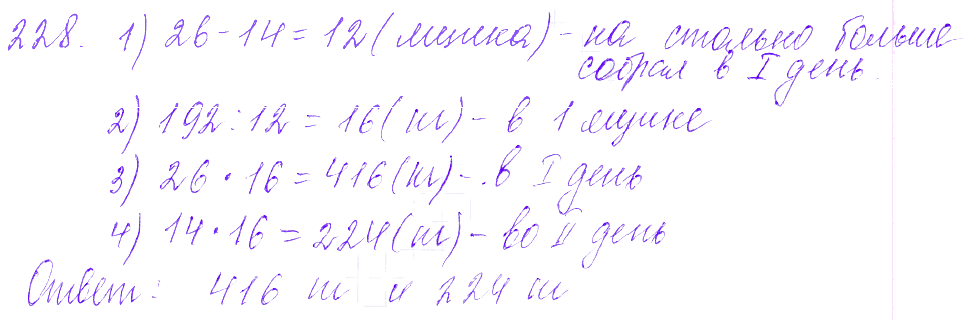 228. 1) 26 - 14 = 12 (ящика) - на столько больше
собрал в I день.
2) 192 : 12 = 16 (кг) - в 1 ящике
3) 26 · 16 = 416 (кг) - в I день
4) 14 · 16 = 224 (кг) - во II день
Ответ: 416 кг и 224 кг